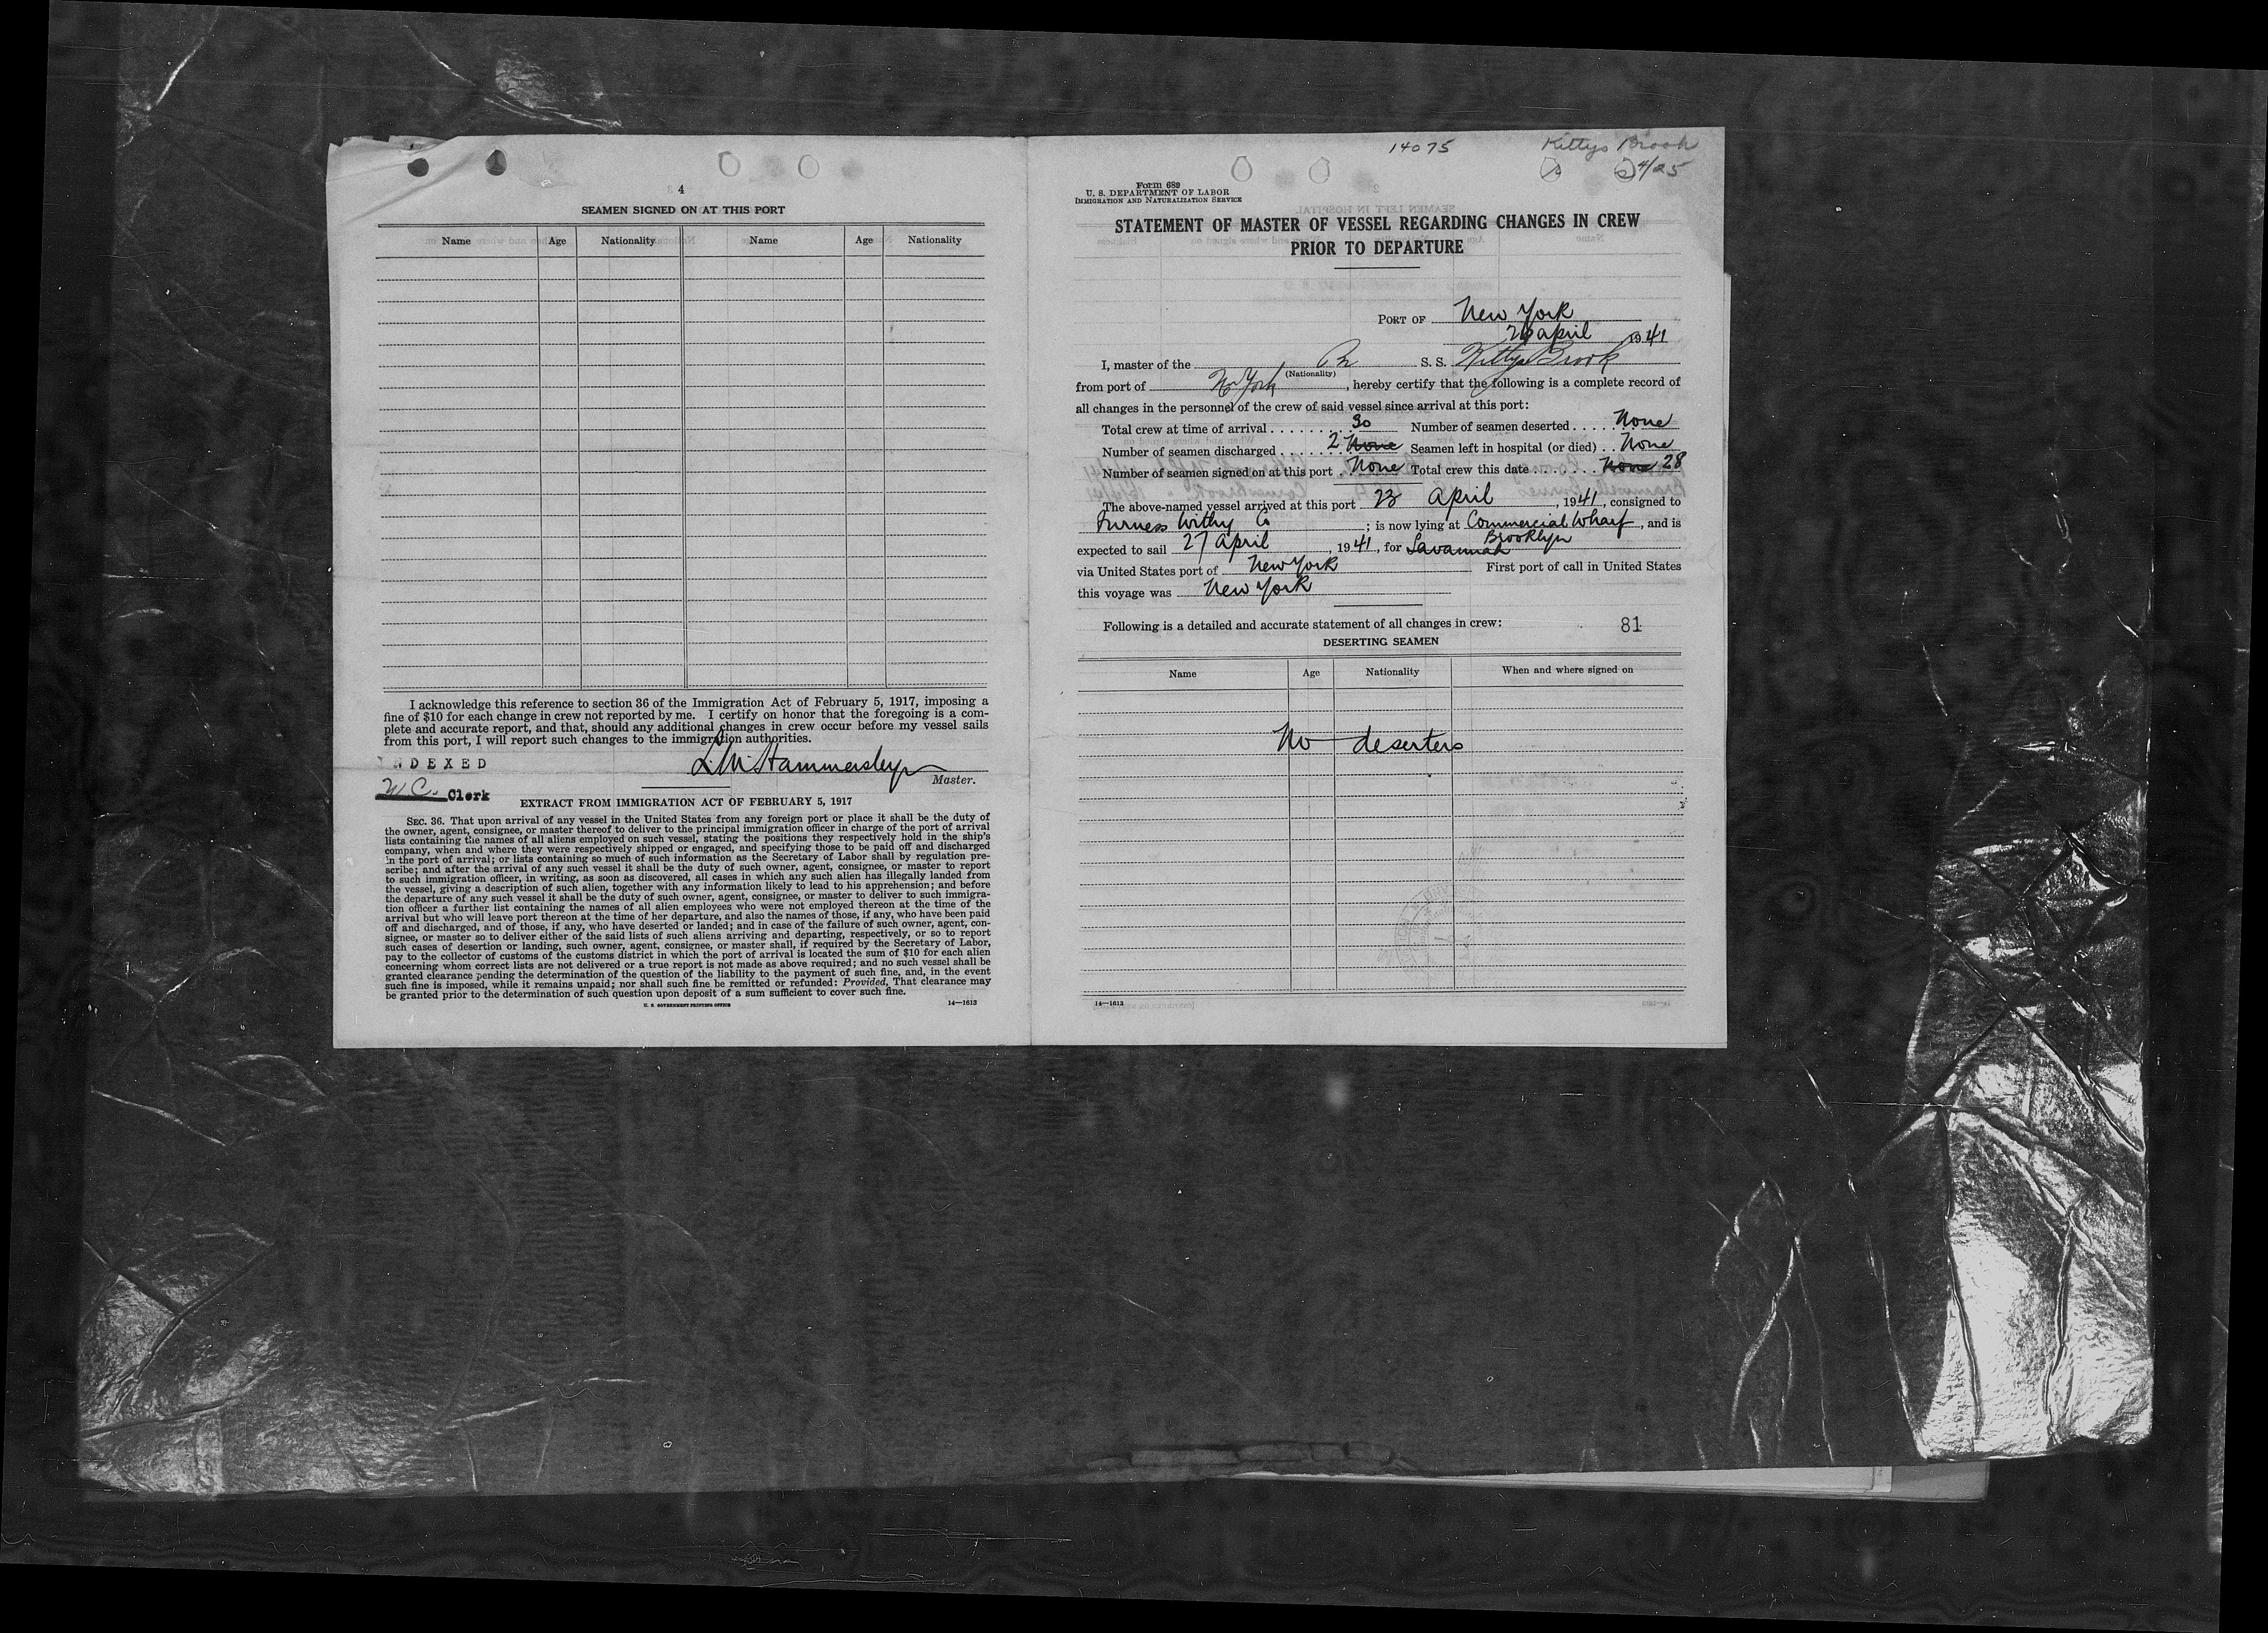 4
SEAMEN SIGNED ON AT THIS PORT
Name Age Nationality Name Age Nationality
I acknowledge this reference to section 36 of the Immigration Act of February 5, 1917, imposing a
fine of $10 for each change in crew not reported by me. I certify on honor that the foregoing is a com-
plete and accurate report, and that, should any additional changes in crew occur before my vessel sails
from this port, I will report such changes to the immigration authorities.
INDEXED
L. M. Hammersley
Master.
W C. Clerk
EXTRACT FROM IMMIGRATION ACT OF FEBRUARY 5, 1917
SEC. 36. That upon arrival of any vessel in the United States from any foreign port or place it shall be the duty of
the owner, agent, consignee, or master thereof to deliver to the principal immigration officer in charge of the port of arrival
lists containing the names of all aliens employed on such vessel, stating the positions they respectively hold in the ship's
company, when and where they were respectively shipped or engaged, and specifying those to be paid off and discharged
in the port of arrival; or lists containing so much of such information as the Secretary of Labor shall by regulation pre-
scribe; and after the arrival of any such vessel it shall be the duty of such owner, agent, consignee, or master to report
to such immigration officer, in writing, as soon as discovered, all cases in which any such alien has illegally landed from
the vessel, giving a description of such alien, together with any information likely to lead to his apprehension; and before
the departure of any such vessel it shall be the duty of such owner, agent, consignee, or master to deliver to such immigra-
tion officer a further list containing the names of all alien employees who were not employed thereon at the time of the
arrival but who will leave port thereon at the time of her departure, and also the names of those, if any, who have been paid
off and discharged, and of those, if any, who have deserted or landed; and in case of the failure of such owner, agent, con-
signee, or master so to deliver either of the said lists of such aliens arriving and departing, respectively, or so to report
such cases of desertion or landing, such owner, agent, consignee, or master shall, if required by the Secretary of Labor,
pay to the collector of customs of the customs district in which the port of arrival is located the sum of $10 for each alien
concerning whom correct lists are not delivered or a true report is not made as above required; and no such vessel shall be
granted clearance pending the determination of the question of the liability to the payment of such fine, and, in the event
such fine is imposed, while it remains unpaid; nor shall such fine be remitted or refunded: Provided, That clearance may
be granted prior to the determination of such question upon deposit of a sum sufficient to cover such fine.
U. S. GOVERNMENT PRINTING OFFICE 14—1613
14075 Kittys Brook
4/25
Form 689
U. S. DEPARTMENT OF LABOR
IMMIGRATION AND NATURALIZATION SERVICE
STATEMENT OF MASTER OF VESSEL REGARDING CHANGES IN CREW
PRIOR TO DEPARTURE
PORT OF New York
26 April 1941
I, master of the Br S. S. Kittys Brook
(Nationality)
from port of N York, hereby certify that the following is a complete record of
all changes in the personnel of the crew of said vessel since arrival at this port:
Total crew at time of arrival 30 Number of seamen deserted None
Number of seamen discharged 2 None Seamen left in hospital (or died) None
Number of seamen signed on at this port None Total crew this date None 28
The above-named vessel arrived at this port 23 April, 1941, consigned to
Furness Withy Co; is now lying at Commercial Wharf, and is
Brooklyn
expected to sail 27 April, 1941, for Savannah
via United States port of New York First port of call in United States
this voyage was New York
Following is a detailed and accurate statement of all changes in crew: 81
DESERTING SEAMEN
Name Age Nationality When and where signed on
No deserters
14—1613